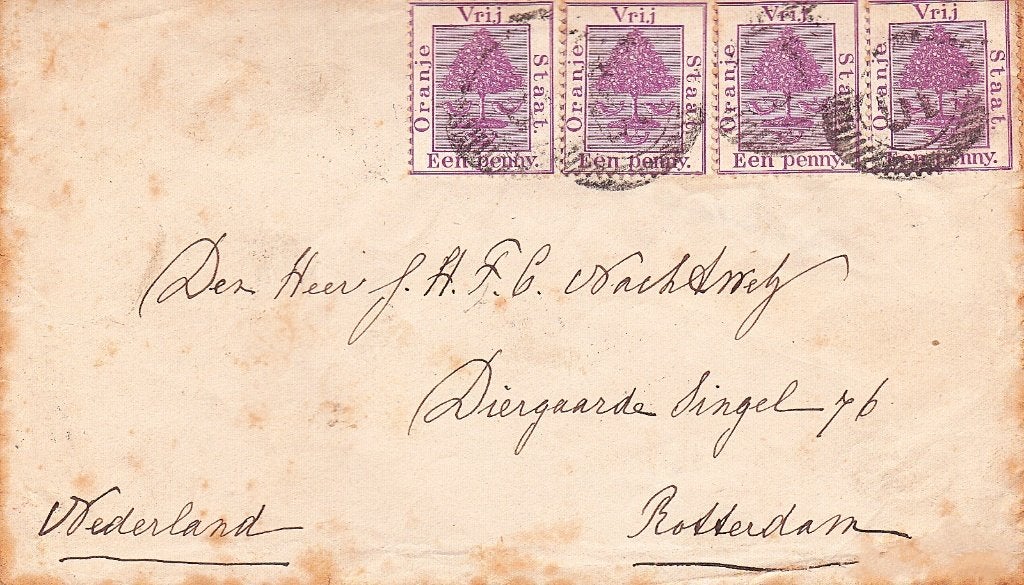 Vrij Vrij Vrij Vrij
Oranje Staat. Oranje Staat. Oranje Staat. Oranje Staat.
Een penny. Een penny. Een penny. Een penny.
Den Heer J. H. F. C. Nachtweh
Diergaarde Singel 76
Nederland Rotterdam